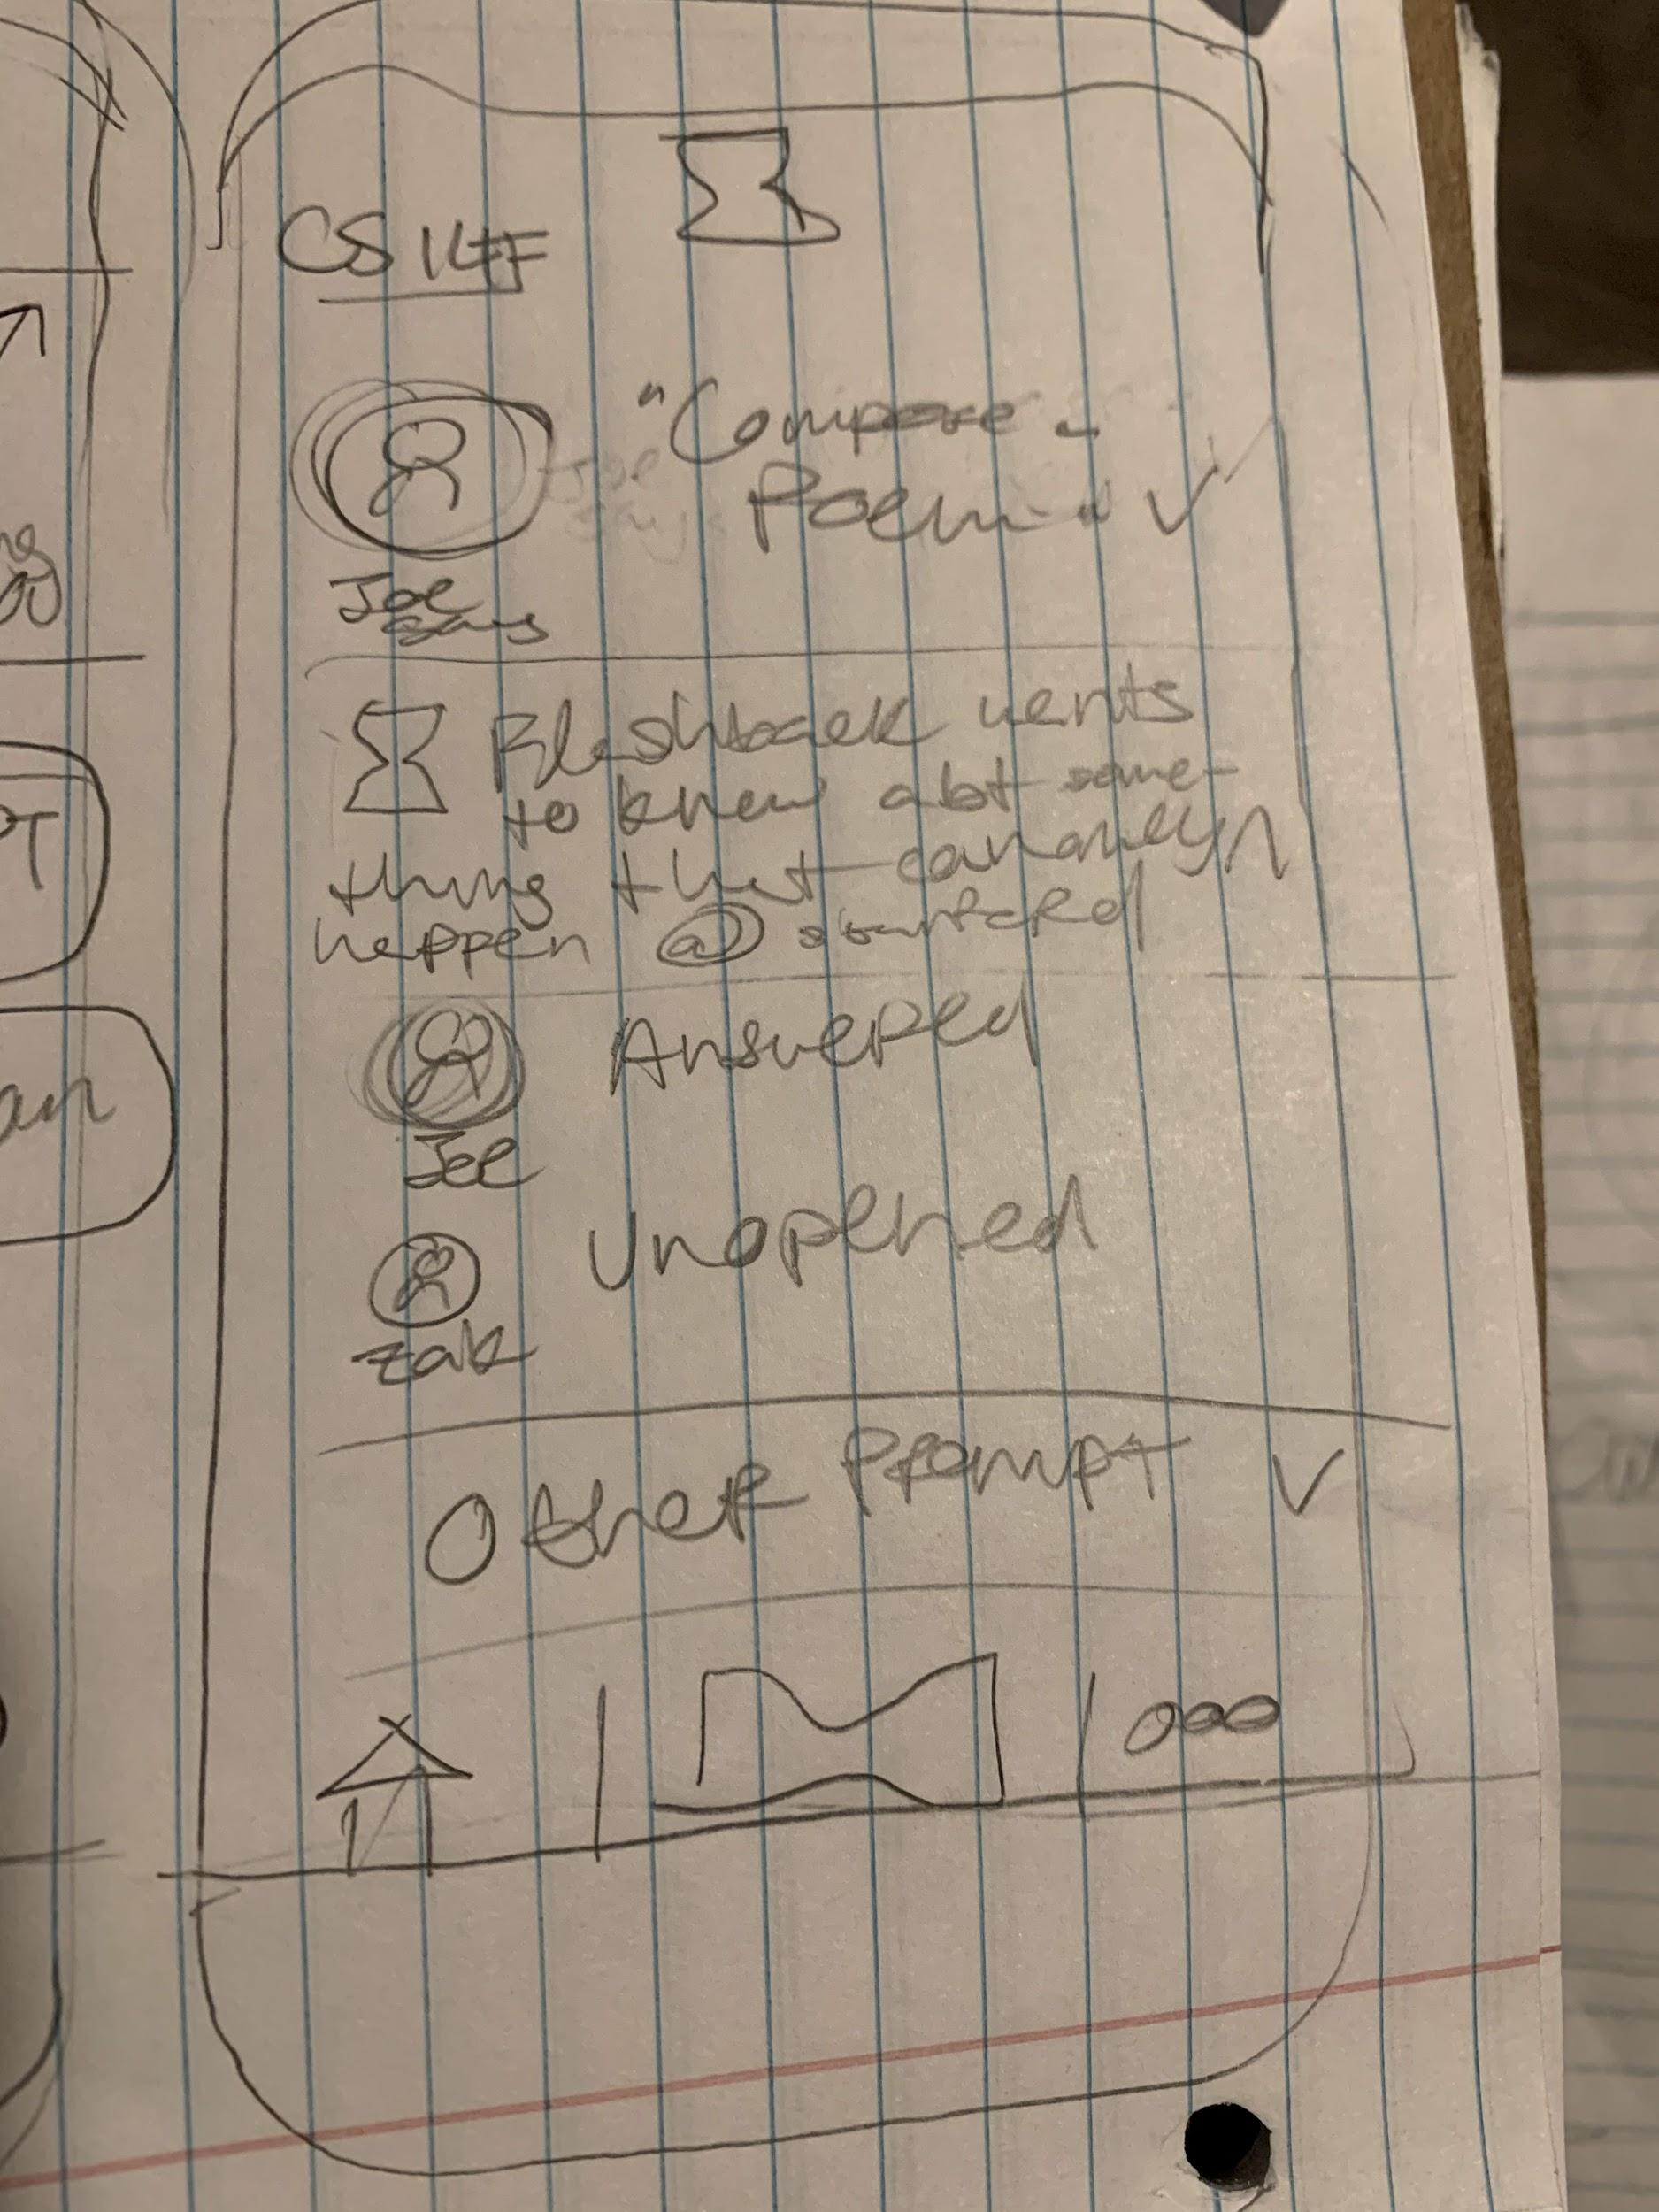 CS 147
"Compose a
Poem" V
Joe
says
Flashback wants
to know abt some-
thing that can only
happen @ stanford
Answered
Joe
Unopened
Zak
Other Prompt V